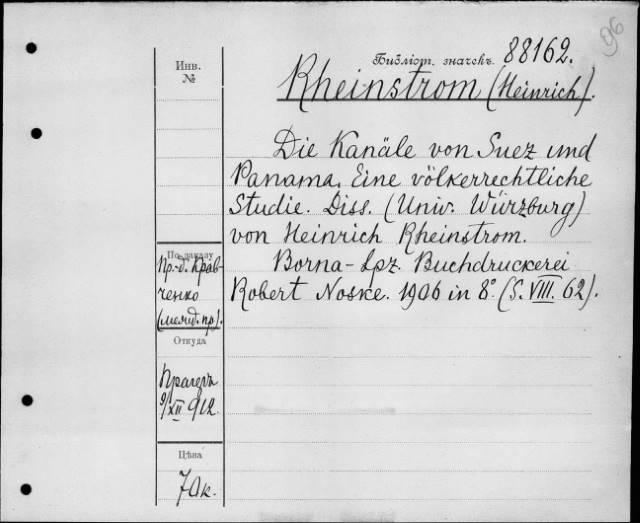 96
Библіот. значекъ. 88162.
Инв.
№
Rheinstrom (Heinrich).
Die Kanäle von Suez und
Panama. Eine völkerrechtliche
Studie. Diss. (Univ. Würzburg)
von Heinrich Rheinstrom.
Borna-Lpz. Buchdruckerei
Robert Noske. 1906 in 8° (S. VIII. 62).
По заказу
Пр.-д. Крав-
ченко
(межд. пр.).
Откуда
Прагеръ
9/XII 912.
Цѣна
70 к.